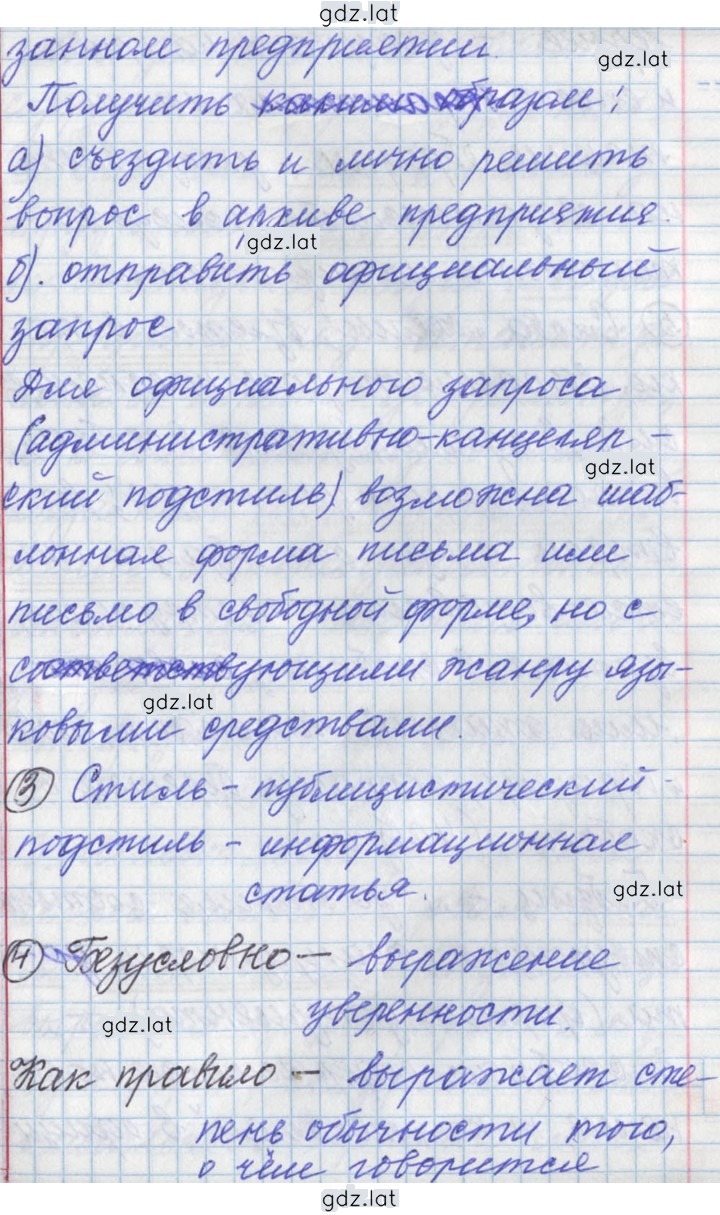 gdz.lat
занном предприятии.
gdz.lat
Получить каким образом:
а) съездить и лично решить
вопрос в архиве предприятия.
gdz.lat
б). отправить официальный
запрос
Для официального запроса
(административно-канцеляр-
gdz.lat
ский подстиль) возможна шаб-
лонная форма письма или
письмо в свободной форме, но с
соответствующими жанру язы-
gdz.lat
ковыми средствами.
3 Стиль - публицистический
подстиль - информационная
статья.
gdz.lat
4 Безусловно - выражение
уверенности.
gdz.lat
Как правило - выражает сте-
пень обычности того,
о чём говорится
gdz.lat